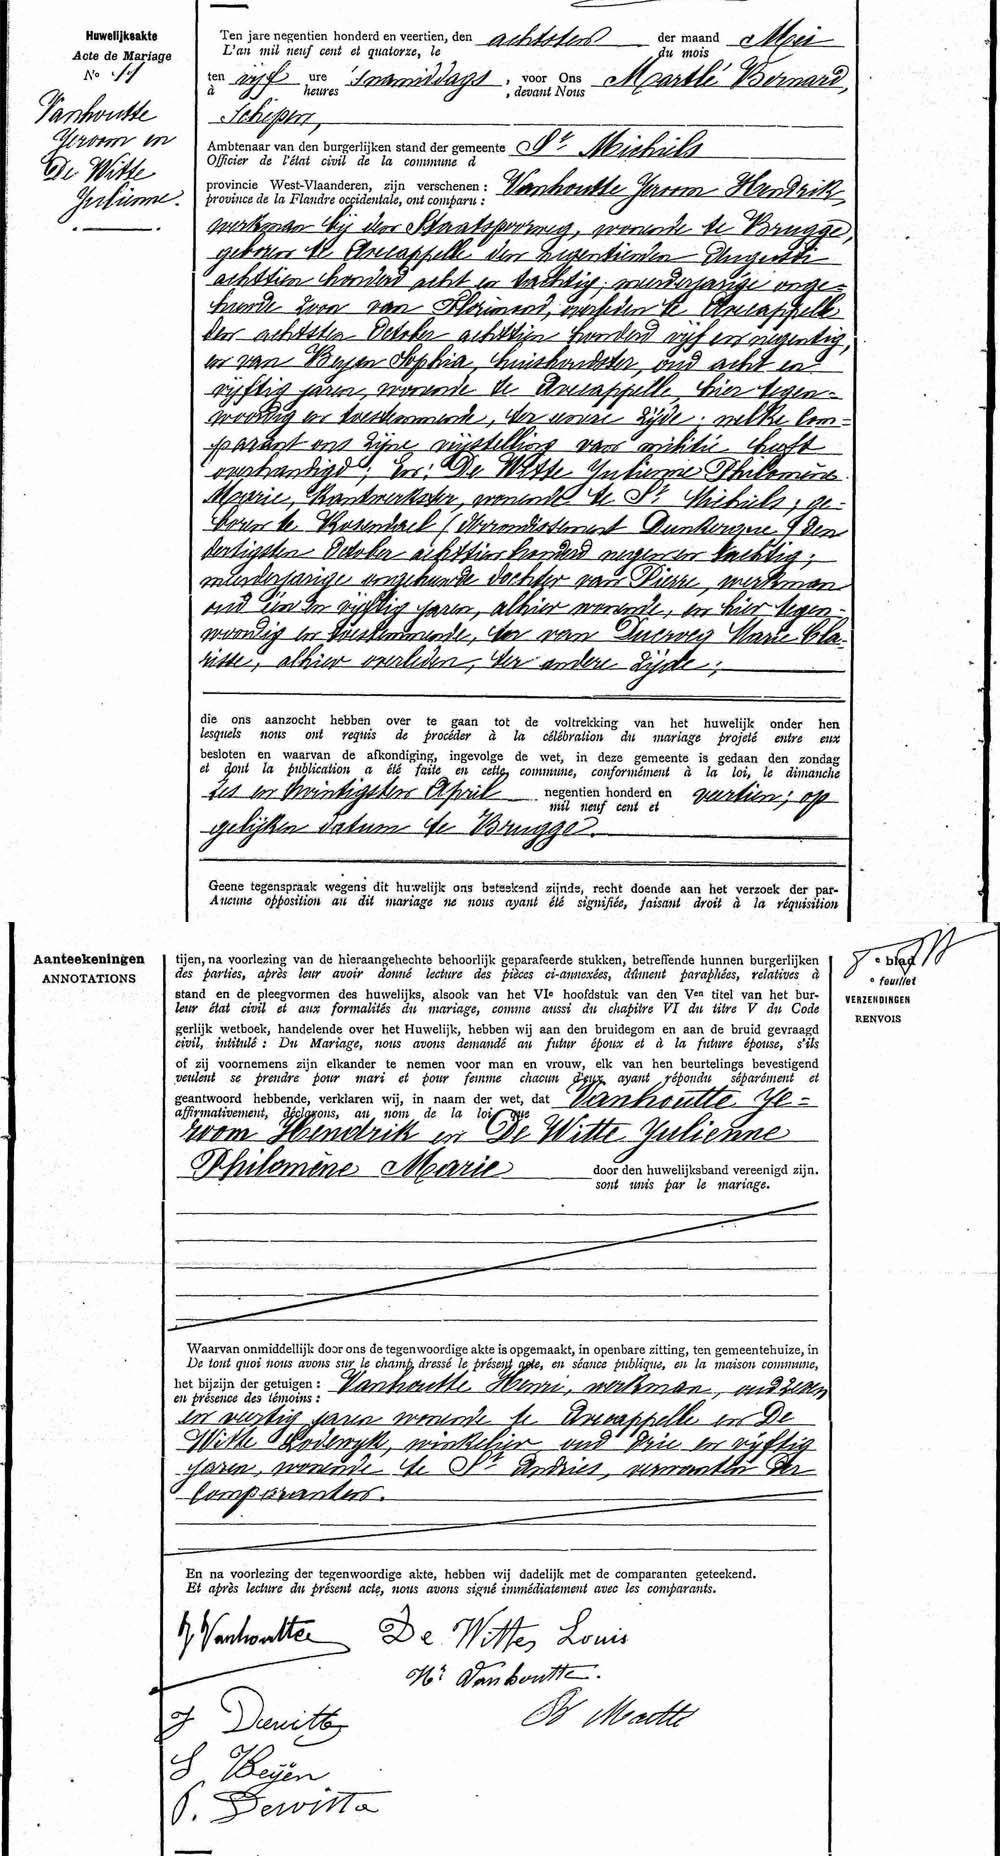 Huwelijksakte
Acte de Mariage
No 11
Vanhoutte
Jeroom en
De Witte
Julienne.
Ten jare negentien honderd en veertien, den achtsten der maand Mei
L'an mil neuf cent et quatorze, le du mois
ten vijf ure 's namiddags, voor Ons Martlé Bernard,
à heures , devant Nous
Schepen,
Ambtenaar van den burgerlijken stand der gemeente St Michiels
Officier de l'état civil de la commune d
provincie West-Vlaanderen, zijn verschenen : Vanhoutte Jeroom Hendrik,
province de la Flandre occidentale, ont comparu :
werkman bij den Staatspoorweg, wonende te Brugge,
geboren te Avecappelle den negentienden Augusti
achttien honderd acht en tachtig; meerderjarige onge=
huwde zoon van Florimond, overleden te Avecappelle
den achtsten October achttien honderd vijf en negentig,
en van Beyen Sophia, huishoudster, oud acht en
vijftig jaren, wonende te Avecappelle, hier tegen=
woordig en toestemmende, ter eenre zijde; welke com=
parant ons zijne vrijstelling van militie heeft
overhandigd; En: De Witte Julienne Philomène
Marie, kantwerkster, wonende te St Michiels, ge=
boren te Rosendael (Arrondissement Dunkerque) den
dertigsten October achttien honderd negen en tachtig;
meerderjarige ongehuwde dochter van Pierre, werkman
oud één en vijftig jaren, alhier wonende, en hier tegen=
woordig en toestemmende, en van Ducervey Marie Cla=
risse, alhier overleden, ter andere zijde;
die ons aanzocht hebben over te gaan tot de voltrekking van het huwelijk onder hen
lesquels nous ont requis de procéder à la célébration du mariage projeté entre eux
besloten en waarvan de afkondiging, ingevolge de wet, in deze gemeente is gedaan den zondag
et dont la publication a été faite en cette commune, conformément à la loi, le dimanche
zes en twintigsten April negentien honderd en veertien; op
mil neuf cent et
gelijken datum te Brugge.
Geene tegenspraak wegens dit huwelijk ons beteekend zijnde, recht doende aan het verzoek der par-
Aucune opposition au dit mariage ne nous ayant été signifiée, faisant droit à la réquisition
Aanteekeningen
ANNOTATIONS
e blad
e feuillet
VERZENDINGEN
RENVOIS
tijen, na voorlezing van de hieraangehechte behoorlijk geparafeerde stukken, betreffende hunnen burgerlijken
des parties, après leur avoir donné lecture des pièces ci-annexées, dûment paraphées, relatives à
stand en de pleegvormen des huwelijks, alsook van het VIe hoofdstuk van den Ven titel van het bur-
leur état civil et aux formalités du mariage, comme aussi du chapitre VI du titre V du Code
gerlijk wetboek, handelende over het Huwelijk, hebben wij aan den bruidegom en aan de bruid gevraagd
civil, intitulé : Du Mariage, nous avons demandé au futur époux et à la future épouse, s'ils
of zij voornemens zijn elkander te nemen voor man en vrouw, elk van hen beurtelings bevestigend
veulent se prendre pour mari et pour femme chacun d'eux ayant répondu séparément et
geantwoord hebbende, verklaren wij, in naam der wet, dat Vanhoutte Je=
affirmativement, déclarons, au nom de la loi que
room Hendrik en De Witte Julienne
Philomène Marie door den huwelijksband vereenigd zijn.
sont unis par le mariage.
Waarvan onmiddellijk door ons de tegenwoordige akte is opgemaakt, in openbare zitting, ten gemeentehuize, in
De tout quoi nous avons sur le champ dressé le présent acte, en séance publique, en la maison commune,
het bijzijn der getuigen : Vanhoutte Henri, werkman, oud zeven
en présence des témoins :
en veertig jaren wonende te Avecappelle en De
Witte Lodewyk, winkelier, oud drie en vijftig
jaren, wonende te St Andries, verwanten der
comparanten.
En na voorlezing der tegenwoordige akte, hebben wij dadelijk met de comparanten geteekend.
Et après lecture du présent acte, nous avons signé immédiatement avec les comparants.
J Vanhoutte De Witte Louis
Hri Vanhoutte.
J Dewitte
S Beÿen
P. Dewitte